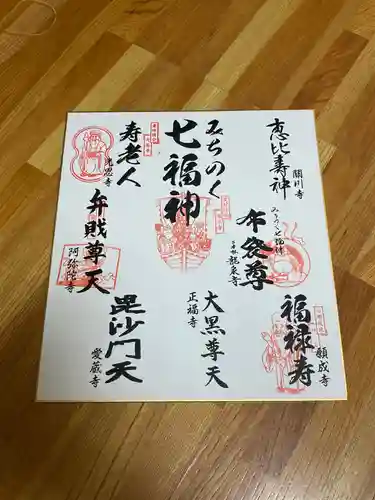 恵比寿神
關川寺
みちのく
七福神
寿老人
光恩寺
布袋尊
龍泉寺
弁財尊天
阿弥陀寺
福禄寿
願成寺
大黒尊天
正福寺
毘沙門天
愛蔵寺